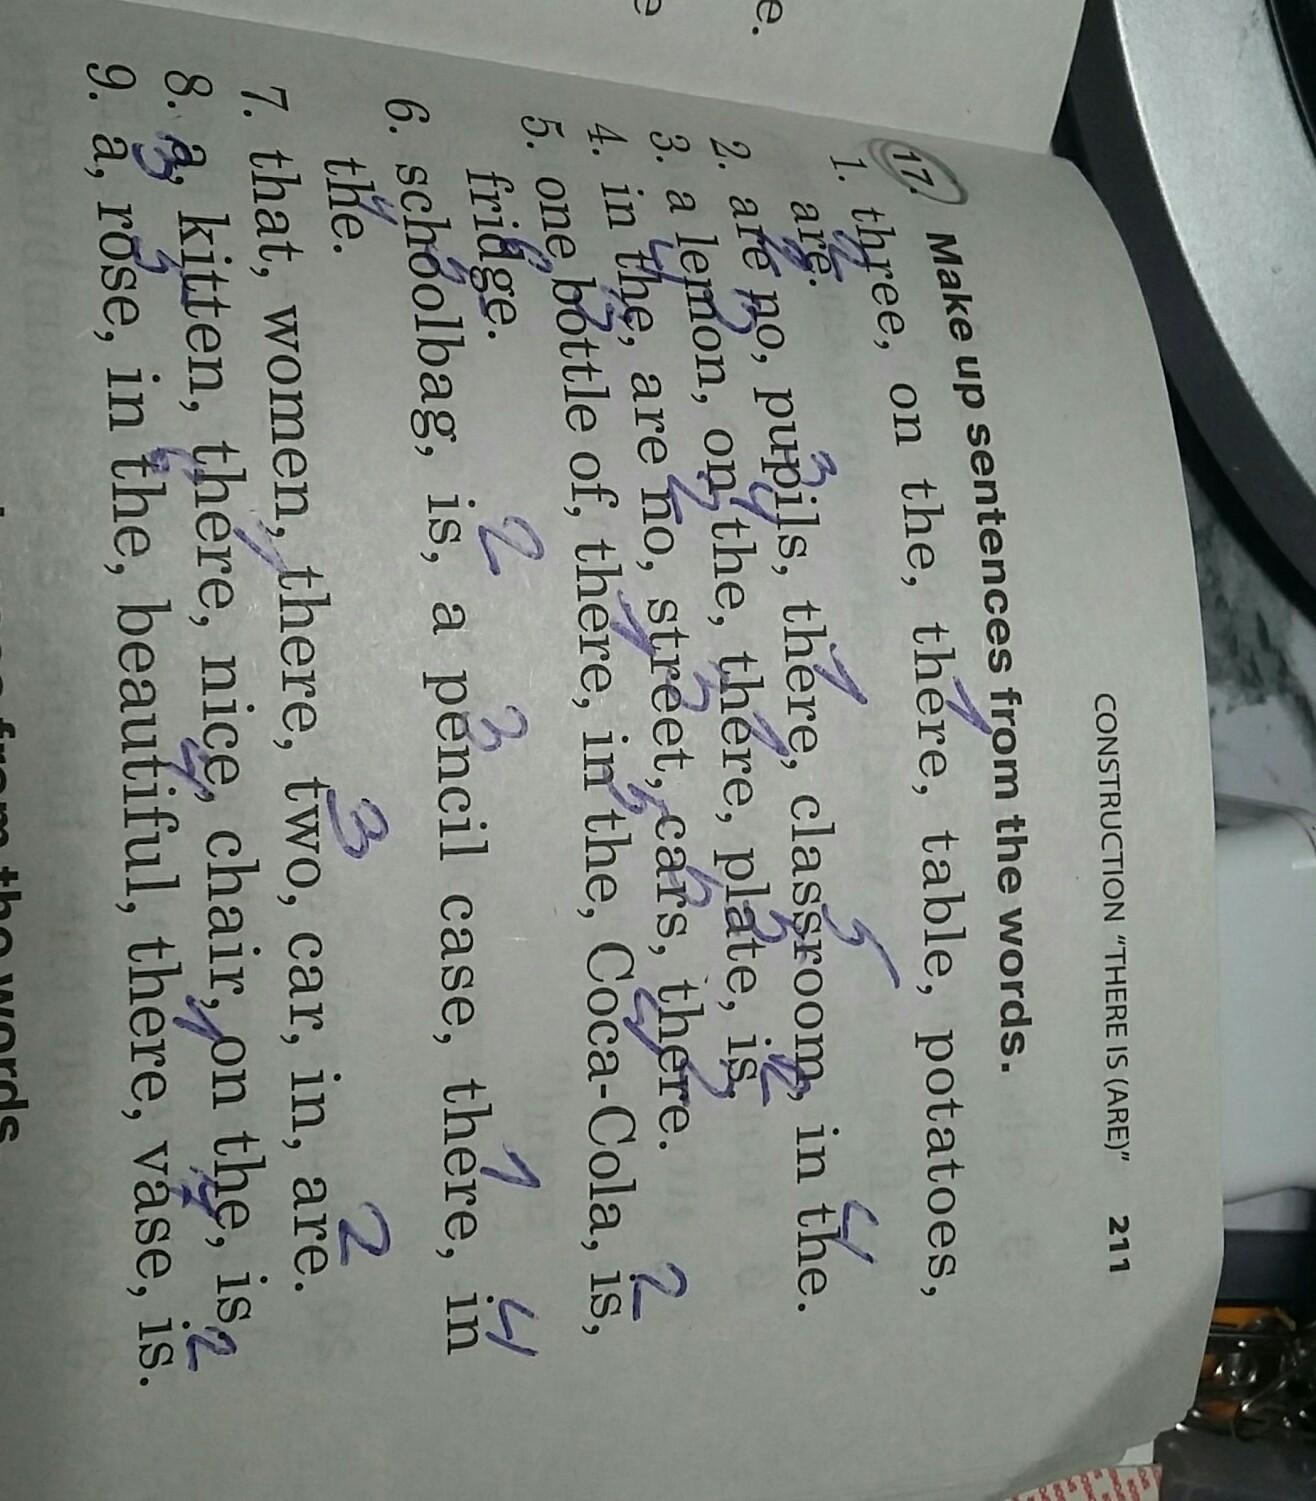 CONSTRUCTION "THERE IS (ARE)" 211
17. Make up sentences from the words.
1. three, on the, there, table, potatoes,
are.
2. are no, pupils, there, classroom, in the.
3. a lemon, on the, there, plate, is.
4. in the, are no, street, cars, there.
5. one bottle of, there, in the, Coca-Cola, is,
fridge.
6. schoolbag, is, a pencil case, there, in
the.
7. that, women, there, two, car, in, are.
8. a, kitten, there, nice, chair, on the, is.
9. a, rose, in the, beautiful, there, vase, is.
from the words